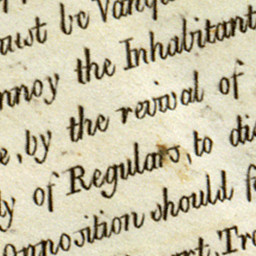 be Vanqu
nnoy the Inhabitant
e, by the revival of
ly of Regulars, to dis
opposition should f
rt, Tro